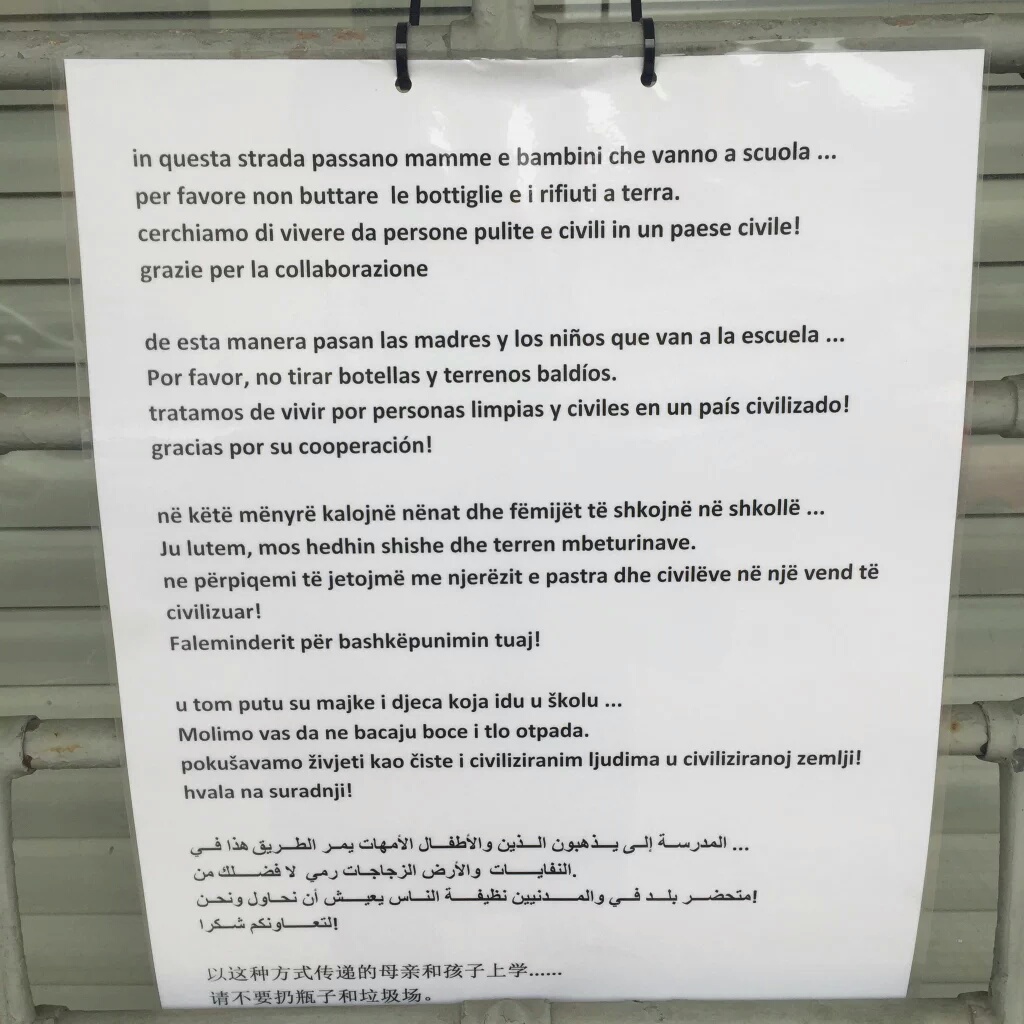 in questa strada passano mamme e bambini che vanno a scuola ...
per favore non buttare le bottiglie e i rifiuti a terra.
cerchiamo di vivere da persone pulite e civili in un paese civile!
grazie per la collaborazione
de esta manera pasan las madres y los niños que van a la escuela ...
Por favor, no tirar botellas y terrenos baldíos.
tratamos de vivir por personas limpias y civiles en un país civilizado!
gracias por su cooperación!
në këtë mënyrë kalojnë nënat dhe fëmijët të shkojnë në shkollë ...
Ju lutem, mos hedhin shishe dhe terren mbeturinave.
ne përpiqemi të jetojmë me njerëzit e pastra dhe civilëve në një vend të
civilizuar!
Faleminderit për bashkëpunimin tuaj!
u tom putu su majke i djeca koja idu u školu ...
Molimo vas da ne bacaju boce i tlo otpada.
pokušavamo živjeti kao čiste i civiliziranim ljudima u civiliziranoj zemlji!
hvala na suradnji!
... المدرسة إلى يذهبون الذين والأطفال الأمهات يمر الطريق هذا في
.النفايات والأرض الزجاجات رمي لا فضلك من
!متحضر بلد في والمدنيين نظيفة الناس يعيش أن نحاول ونحن
!لتعاونكم شكرا
以这种方式传递的母亲和孩子上学......
请不要扔瓶子和垃圾场。